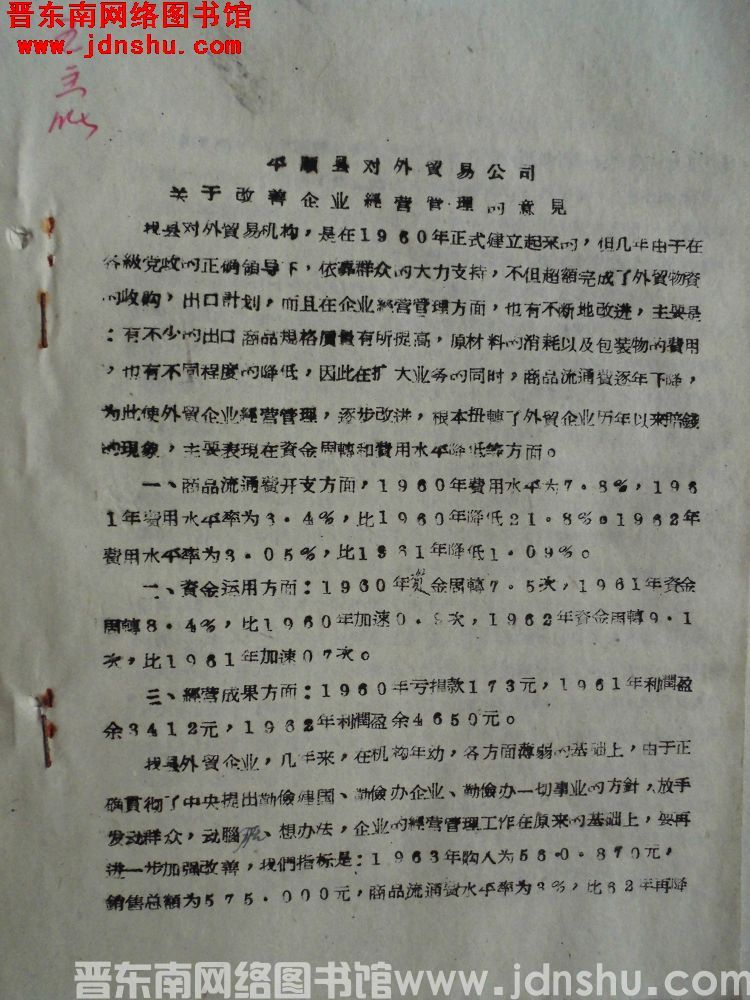 晋东南网络图书馆
www.jdnshu.com
主
平顺县对外貿易公司
关于改善企业經营管理的意見
我县对外貿易机构，是在1960年正式建立起來的，但几年由于在
各級党政的正确領导下，依靠群众的大力支持，不但超額完成了外貿物資
的收购，出口計划，而且在企业經营管理方面，也有不断地改进，主要是
：有不少的出口商品規格質量有所提高，原材料的消耗以及包装物的費用
，也有不同程度的降低，因此在扩大业务的同时，商品流通費逐年下降，
为此使外貿企业經营管理，逐步改进，根本扭轉了外貿企业历年以来賠錢
的現象，主要表現在資金周轉和費用水平降低等方面。
一、商品流通費开支方面，1960年費用水平为7.8%，196
1年費用水平率为3.4%，比1960年降低21.8%。1962年
費用水平率为3.05%，比1961年降低1.09%。
二、資金运用方面：1960年資金周轉7.5次，1961年資金
周轉8.4%，比1960年加速0.9次，1962年資金周轉9.1
次，比1961年加速07次。
三、經营成果方面：1960年亏损款173元，1961年利潤盈
余3412元，1962年利潤盈余4650元。
我县外貿企业，几年来，在机构年幼，各方面薄弱的基础上，由于正
确貫彻了中央提出勤儉建国、勤儉办企业、勤儉办一切事业的方針，放手
发动群众，动腦肋、想办法，企业的經营管理工作在原来的基础上，要再
进一步加强改善，我們指标是：1963年购入为560.870元，
銷售总額为575.000元，商品流通費水平率为3%，比62年再降
晋东南网络图书馆www.jdnshu.com